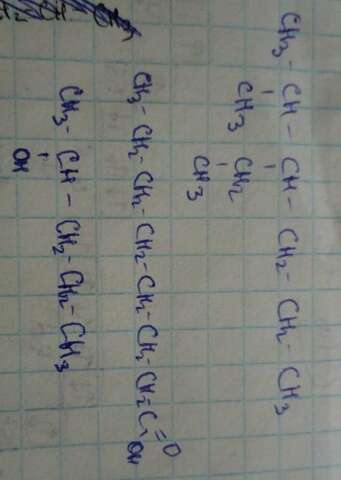 CH₃ - CH - CH - CH₂ - CH₂ - CH₃
CH₃ CH₂
CH₃
CH₃ - CH₂ - CH₂ - CH₂ - CH₂ - CH₂ - CH₂ - C = O
OH
CH₃ - CH - CH₂ - CH₂ - CH₃
OH